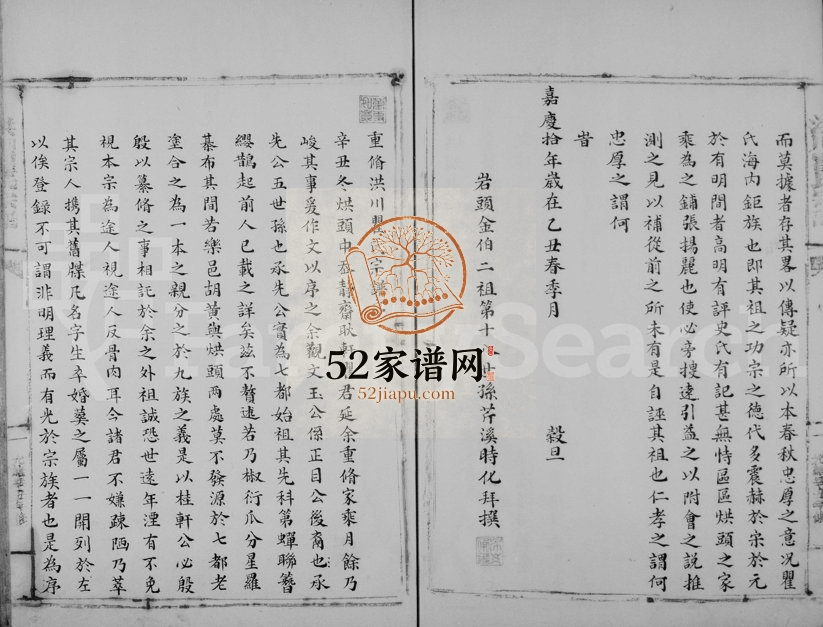 而莫據者存其畧以傳疑亦所以本春秋忠厚之意况瞿
氏海内鉅族也即其祖之功宗之德代多震赫於宋於元
於有明間者高明有評史氏有記甚無恃區區烘頭之家
乘為之鋪張揚麗也使必旁搜遠引益之以附會之說推
測之見以補從前之所未有是自誣其祖也仁孝之謂何
忠厚之謂何
旹
嘉慶拾年歲在乙丑春季月 穀旦
岩頭金伯二祖第十 世孫芹溪時化拜撰
重脩洪川瞿氏宗譜
辛丑冬烘頭中 靜齋耿軒 君延余重脩家乘月餘乃
峻其事爰作文以序之余觀文玉公係正目公後裔也承
先公五世孫也承先公實為七都始祖其先科第蟬聯簪
纓鵲起前人已載之詳矣兹不贅逑若乃椒衍瓜分星羅
棊布其間若樂邑胡黄與烘頭兩處莫不發源於七都老
塗合之為一本之親分之於九族之義是以桂軒公必殷
殷以纂脩之事相託於余之外祖誠恐世遠年湮有不免
視本宗為途人視途人反骨肉耳今諸君不嫌疎陋乃萃
其宗人携其舊牒凡名字生卒婚葬之屬一一開列於左
以俟登録不可謂非明理義而有光於宗族者也是為序
52家谱网
52jiapu.com
FamilySearch